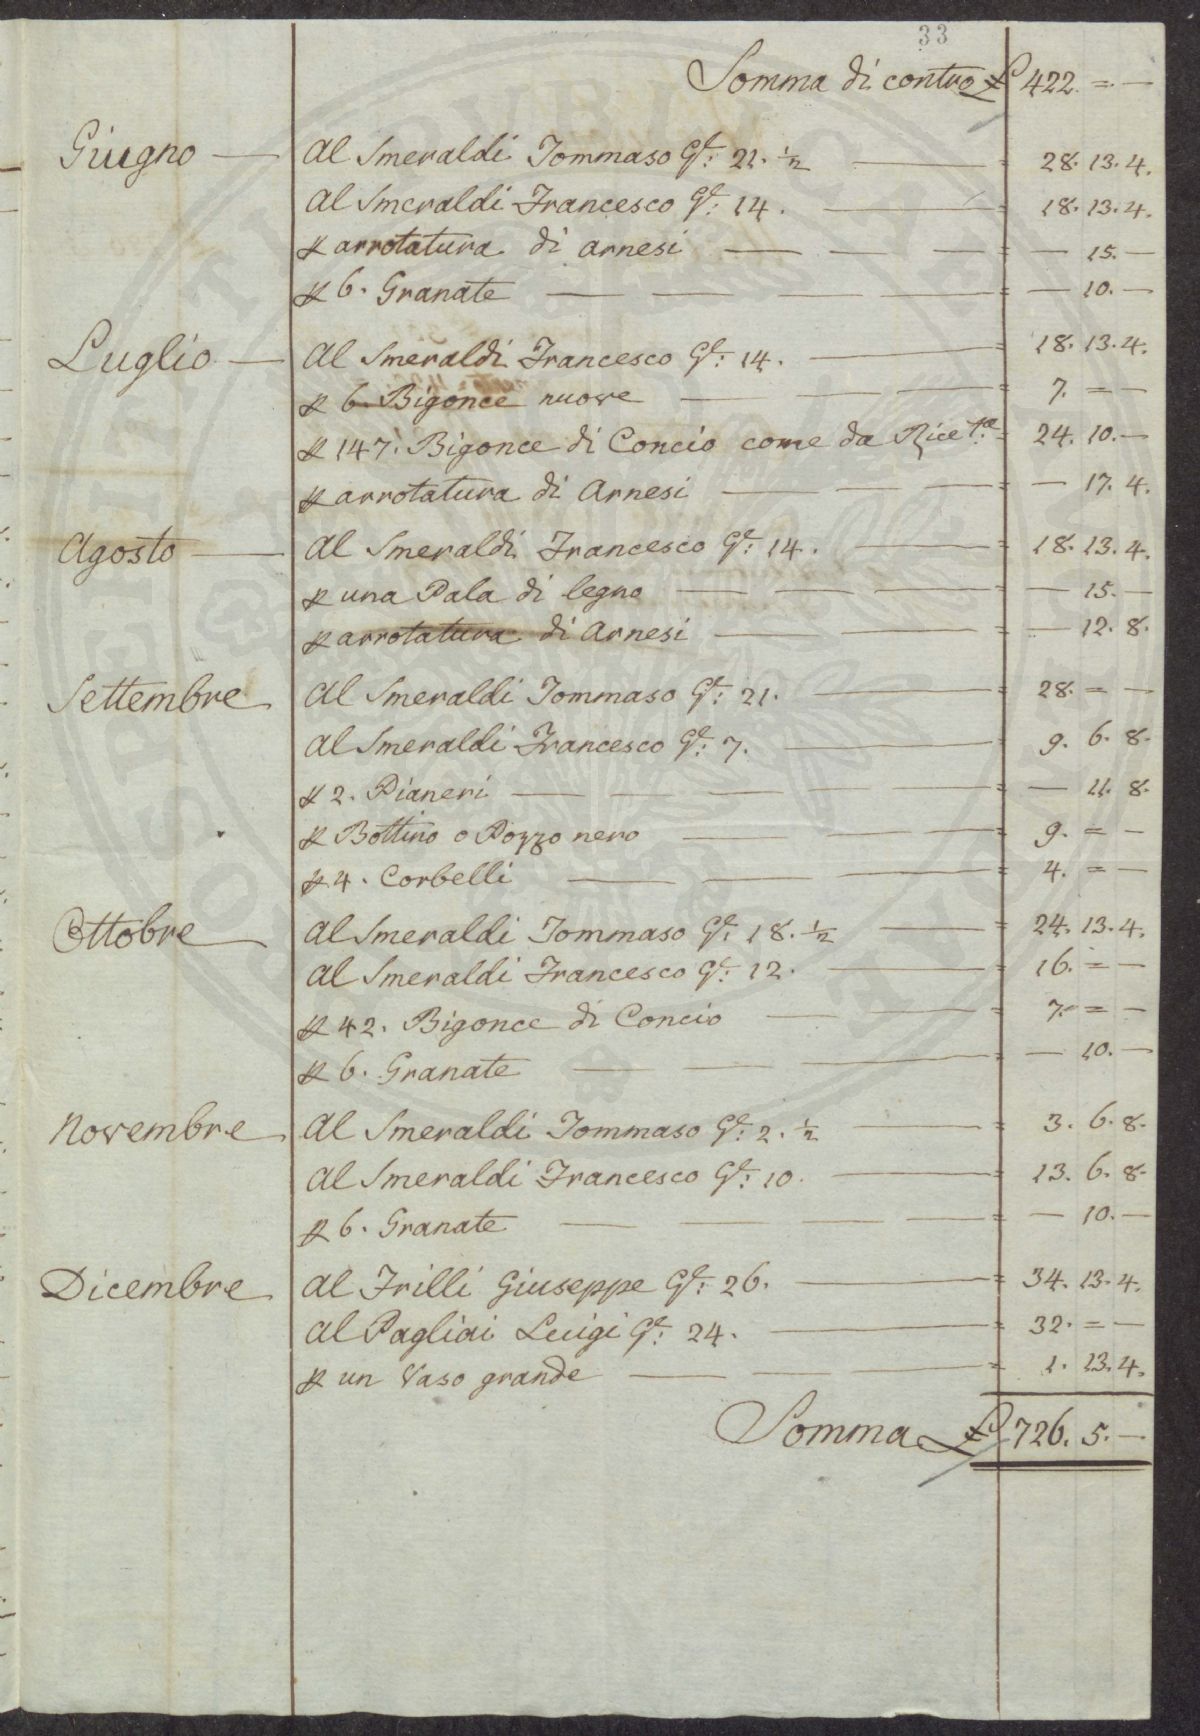 33
Somma di contro £ 422. = —
Giugno — Al Smeraldi Tommaso Gte: 21. ½ — = 28. 13. 4.
Al Smeraldi Francesco Gte: 14. — = 18. 13. 4.
p arrotatura di arnesi — — — = — 15. —
p 6. Granate — — — — = — 10. —
Luglio — Al Smeraldi Francesco Gte: 14. — = 18. 13. 4.
p 6. Bigonce nuove — — — = 7. = —
p 147. Bigonce di Concio come da Ricev.ta = 24. 10. —
p arrotatura di Arnesi — — — = — 17. 4.
Agosto — Al Smeraldi Francesco Gte: 14. — = 18. 13. 4.
p una Pala di legno — — — = — 15. —
p arrotatura di Arnesi — — — = — 12. 8.
Settembre Al Smeraldi Tommaso Gte: 21. — = 28. = —
Al Smeraldi Francesco Gte: 7. — = 9. 6. 8.
p 2. Pianeri — — — — = — 11. 8.
p Bottino o Pozzo nero — — = 9. = —
p 4. Corbelli — — — = 4. = —
Ottobre Al Smeraldi Tommaso Gte: 18. ½ — = 24. 13. 4.
Al Smeraldi Francesco Gte: 12. — = 16. = —
p 42. Bigonce di Concio — — = 7. = —
p 6. Granate — — — = — 10. —
Novembre Al Smeraldi Tommaso Gte: 2. ½ — = 3. 6. 8.
Al Smeraldi Francesco Gte: 10. — = 13. 6. 8.
p 6. Granate — — — — = — 10. —
Dicembre Al Frilli Giuseppe Gte: 26. — = 34. 13. 4.
Al Pagliai Luigi Gte: 24. — = 32. = —
p un Vaso grande — — = 1. 13. 4.
Somma £ 726. 5. —